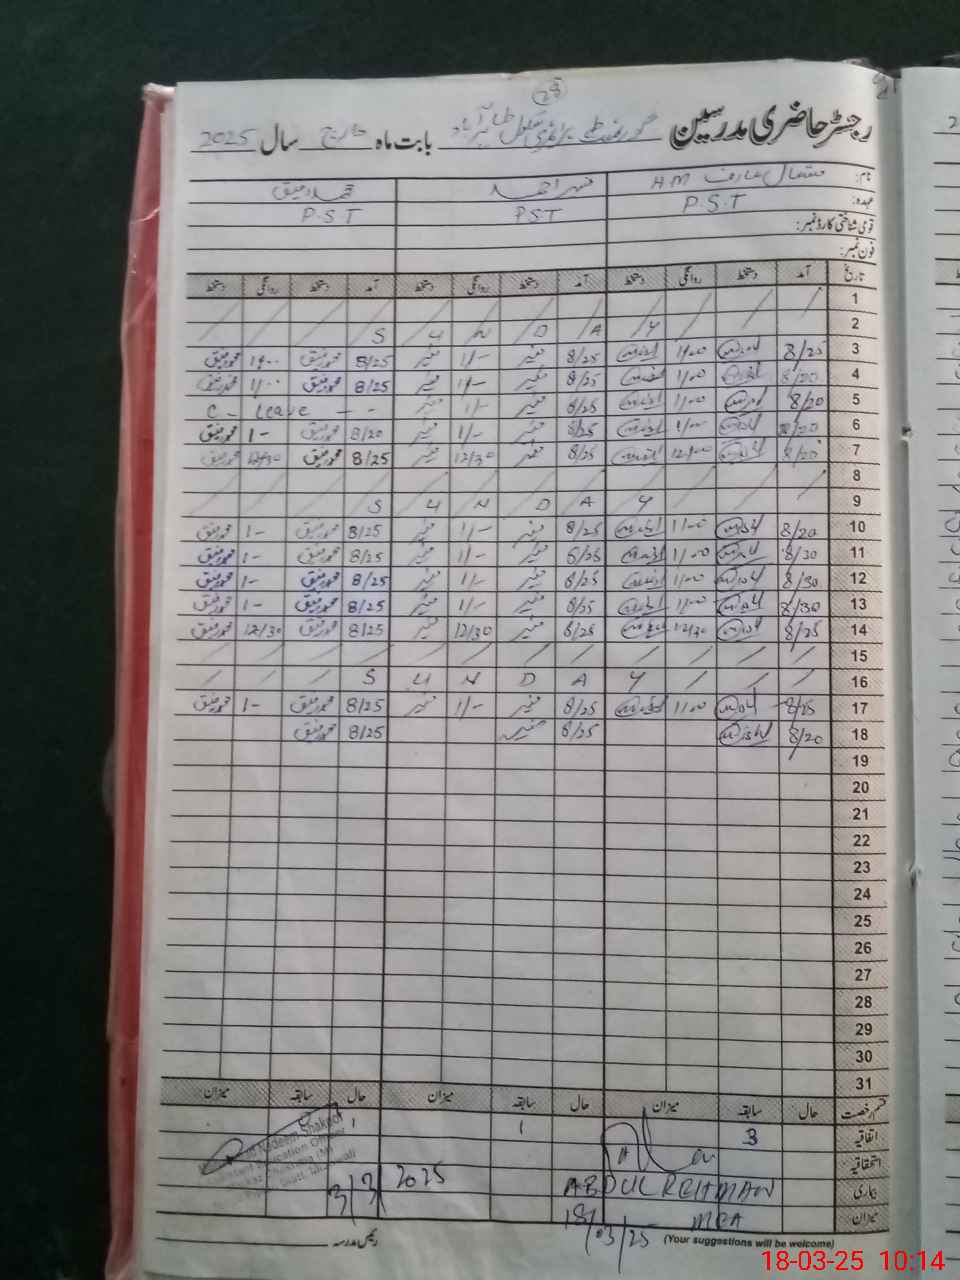 28
رجسٹر حاضری مدرسین گورنمنٹ پرائمری سکول طاہر آباد بابت ماہ مارچ سال 2025
نام: عارف H.M منیر احمد محمد رفیق
عہدہ: P.S.T PST P.S.T
قومی شناختی کارڈ نمبر:
فون نمبر:
تاریخ آمد دستخط روانگی دستخط آمد دستخط روانگی دستخط آمد دستخط روانگی دستخط
1
2 S U N D A Y
3 8/25 1/00 8/25 منیر 1/- منیر 8/25 محمد رفیق 1/00 محمد رفیق
4 8/20 1/00 8/25 منیر 1/- منیر 8/25 محمد رفیق 1/00 محمد رفیق
5 8/20 1/00 8/25 منیر 1/- منیر C - Leave - -
6 8/20 1/00 8/25 منیر 1/- منیر 8/20 محمد رفیق 1- محمد رفیق
7 8/20 12/00 8/25 منیر 12/30 منیر 8/25 محمد رفیق 12/30 محمد رفیق
8
9 S U N D A Y
10 8/20 1/00 8/25 منیر 1/- منیر 8/25 محمد رفیق 1- محمد رفیق
11 8/30 1/00 8/25 منیر 1/- منیر 8/25 محمد رفیق 1- محمد رفیق
12 8/30 1/00 8/25 منیر 1/- منیر 8/25 محمد رفیق 1- محمد رفیق
13 8/30 1/00 8/25 منیر 1/- منیر 8/25 محمد رفیق 1- محمد رفیق
14 8/25 12/30 8/25 منیر 12/30 منیر 8/25 محمد رفیق 12/30 محمد رفیق
15
16 S U N D A Y
17 8/25 1/00 8/25 منیر 1/- منیر 8/25 محمد رفیق 1- محمد رفیق
18 8/20 8/25 منیر 8/25 محمد رفیق
19
20
21
22
23
24
25
26
27
28
29
30
31
قسم رخصت حال سابقہ میزان حال سابقہ میزان حال سابقہ میزان
اتفاقیہ 3 1 1
استحقاقیہ
بیماری ABDUL REHMAN 3/3/2025
میزان MEA 18/03/25
Nadeem Shakoor
Assistant Education Officer
(Your suggestions will be welcome)
رئیس مدرسہ
18-03-25 10:14